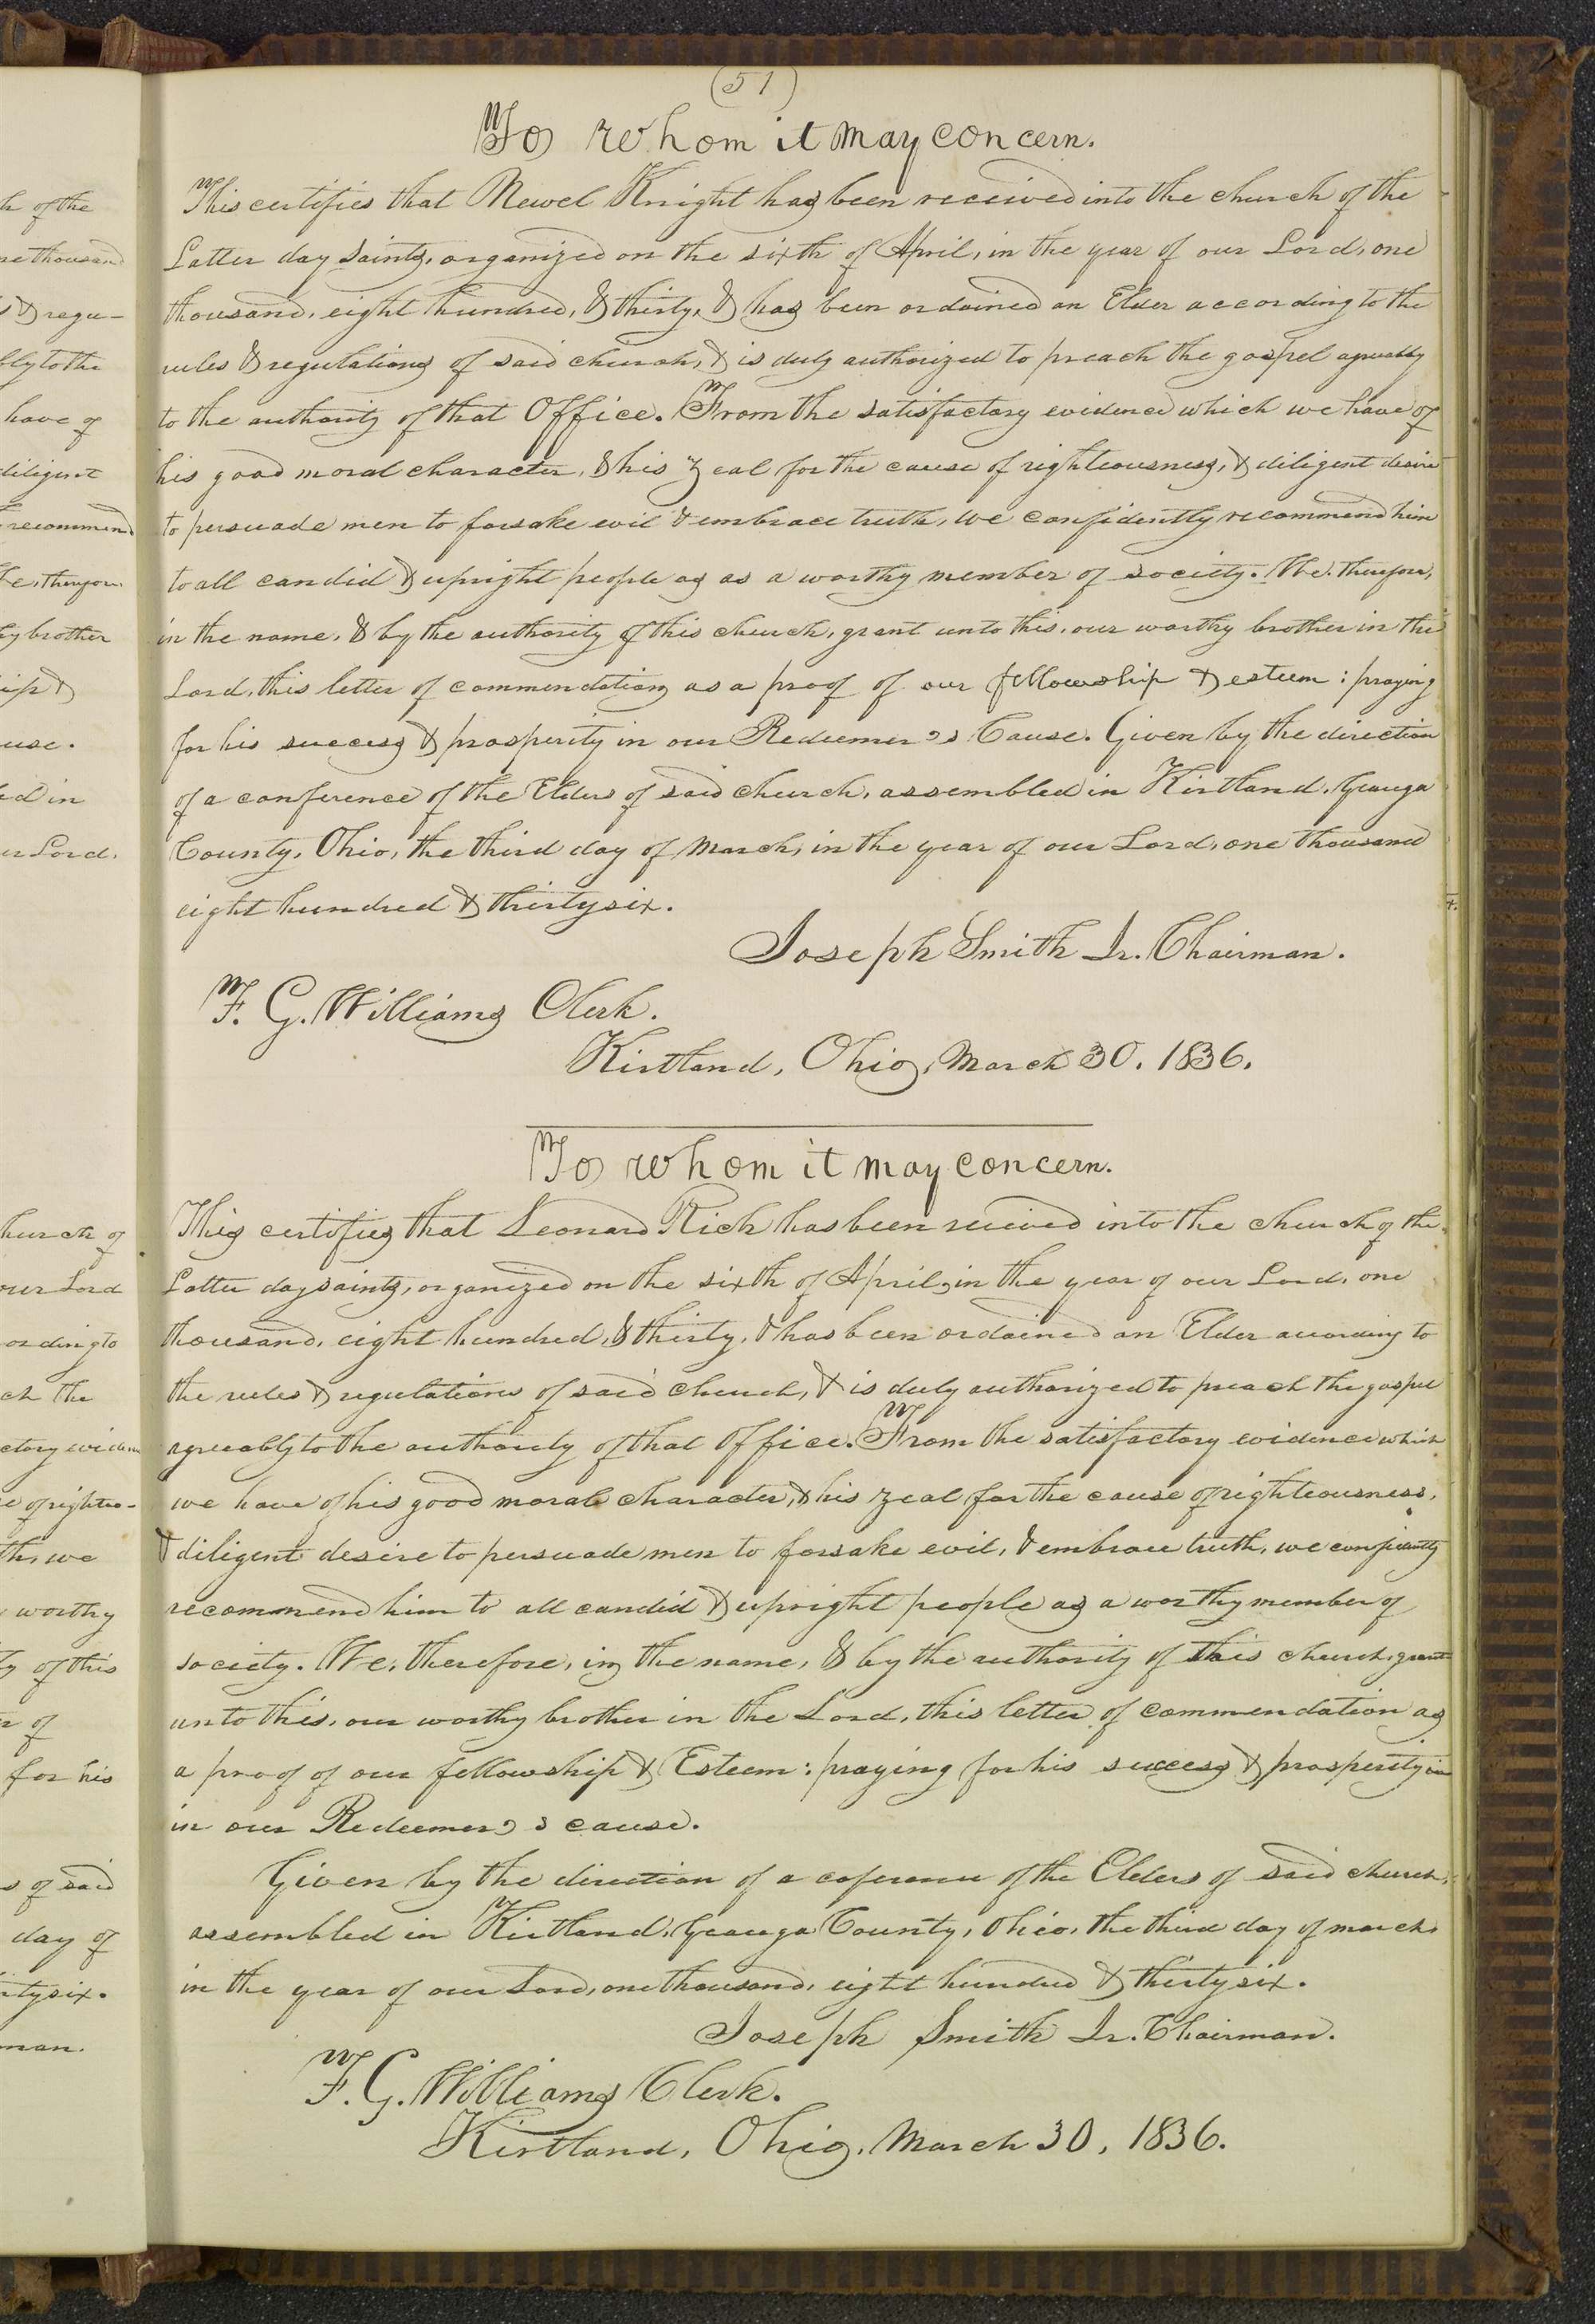 (51)
To whom it may concern.
This certifies that Newel Knight has been received into the church of the
Latter day saints, organized on the sixth of April, in the year of our Lord, one
thousand, eight hundred, & thirty, & has been ordained an Elder according to the
rules & regulations of said church, & is duly authorized to preach the gospel agreeably
to the authority of that Office. From the satisfactory evidence which we have of
his good moral character, & his zeal for the cause of righteousness, & diligent desire
to persuade men to forsake evil & embrace truth, we confidently recommend him
to all candid & upright people as as a worthy member of society. We, therefore,
in the name, & by the authority of this church, grant unto this, our worthy brother in the
Lord, this letter of commendation as a proof of our fellowship & esteem: praying
for his success & prosperity in our Redeemer's Cause. Given by the direction
of a conference of the Elders of said church, assembled in Kirtland, Geauga
County, Ohio, the third day of March, in the year of our Lord, one thousand
eight hundred & thirty six.
Joseph Smith Jr. Chairman.
F. G. Williams Clerk.
Kirtland, Ohio, March 30, 1836.
To whom it may concern.
This certifies that Leonard Rich has been received into the church of the
Latter day saints, organized on the sixth of April, in the year of our Lord, one
thousand, eight hundred, & thirty, & has been ordained an Elder according to
the rules & regulations of said church, & is duly authorized to preach the gospel
agreeably to the authority of that Office. From the satisfactory evidence which
we have of his good moral character, & his zeal for the cause of righteousness,
& diligent desire to persuade men to forsake evil, & embrace truth, we confidently
recommend him to all candid & upright people as a worthy member of
society. We, therefore, in the name, & by the authority of this church, grant
unto this, our worthy brother in the Lord, this letter of commendation as
a proof of our fellowship & Esteem: praying for his success & prosperity in
in our Redeemer's cause.
Given by the direction of a coference of the Elders of said church,
assembled in Kirtland, Geauga County, Ohio, the third day of march
in the year of our Lord, one thousand, eight hundred & thirty six.
Joseph Smith Jr. Chairman.
F. G. Williams Clerk.
Kirtland, Ohio, March 30, 1836.